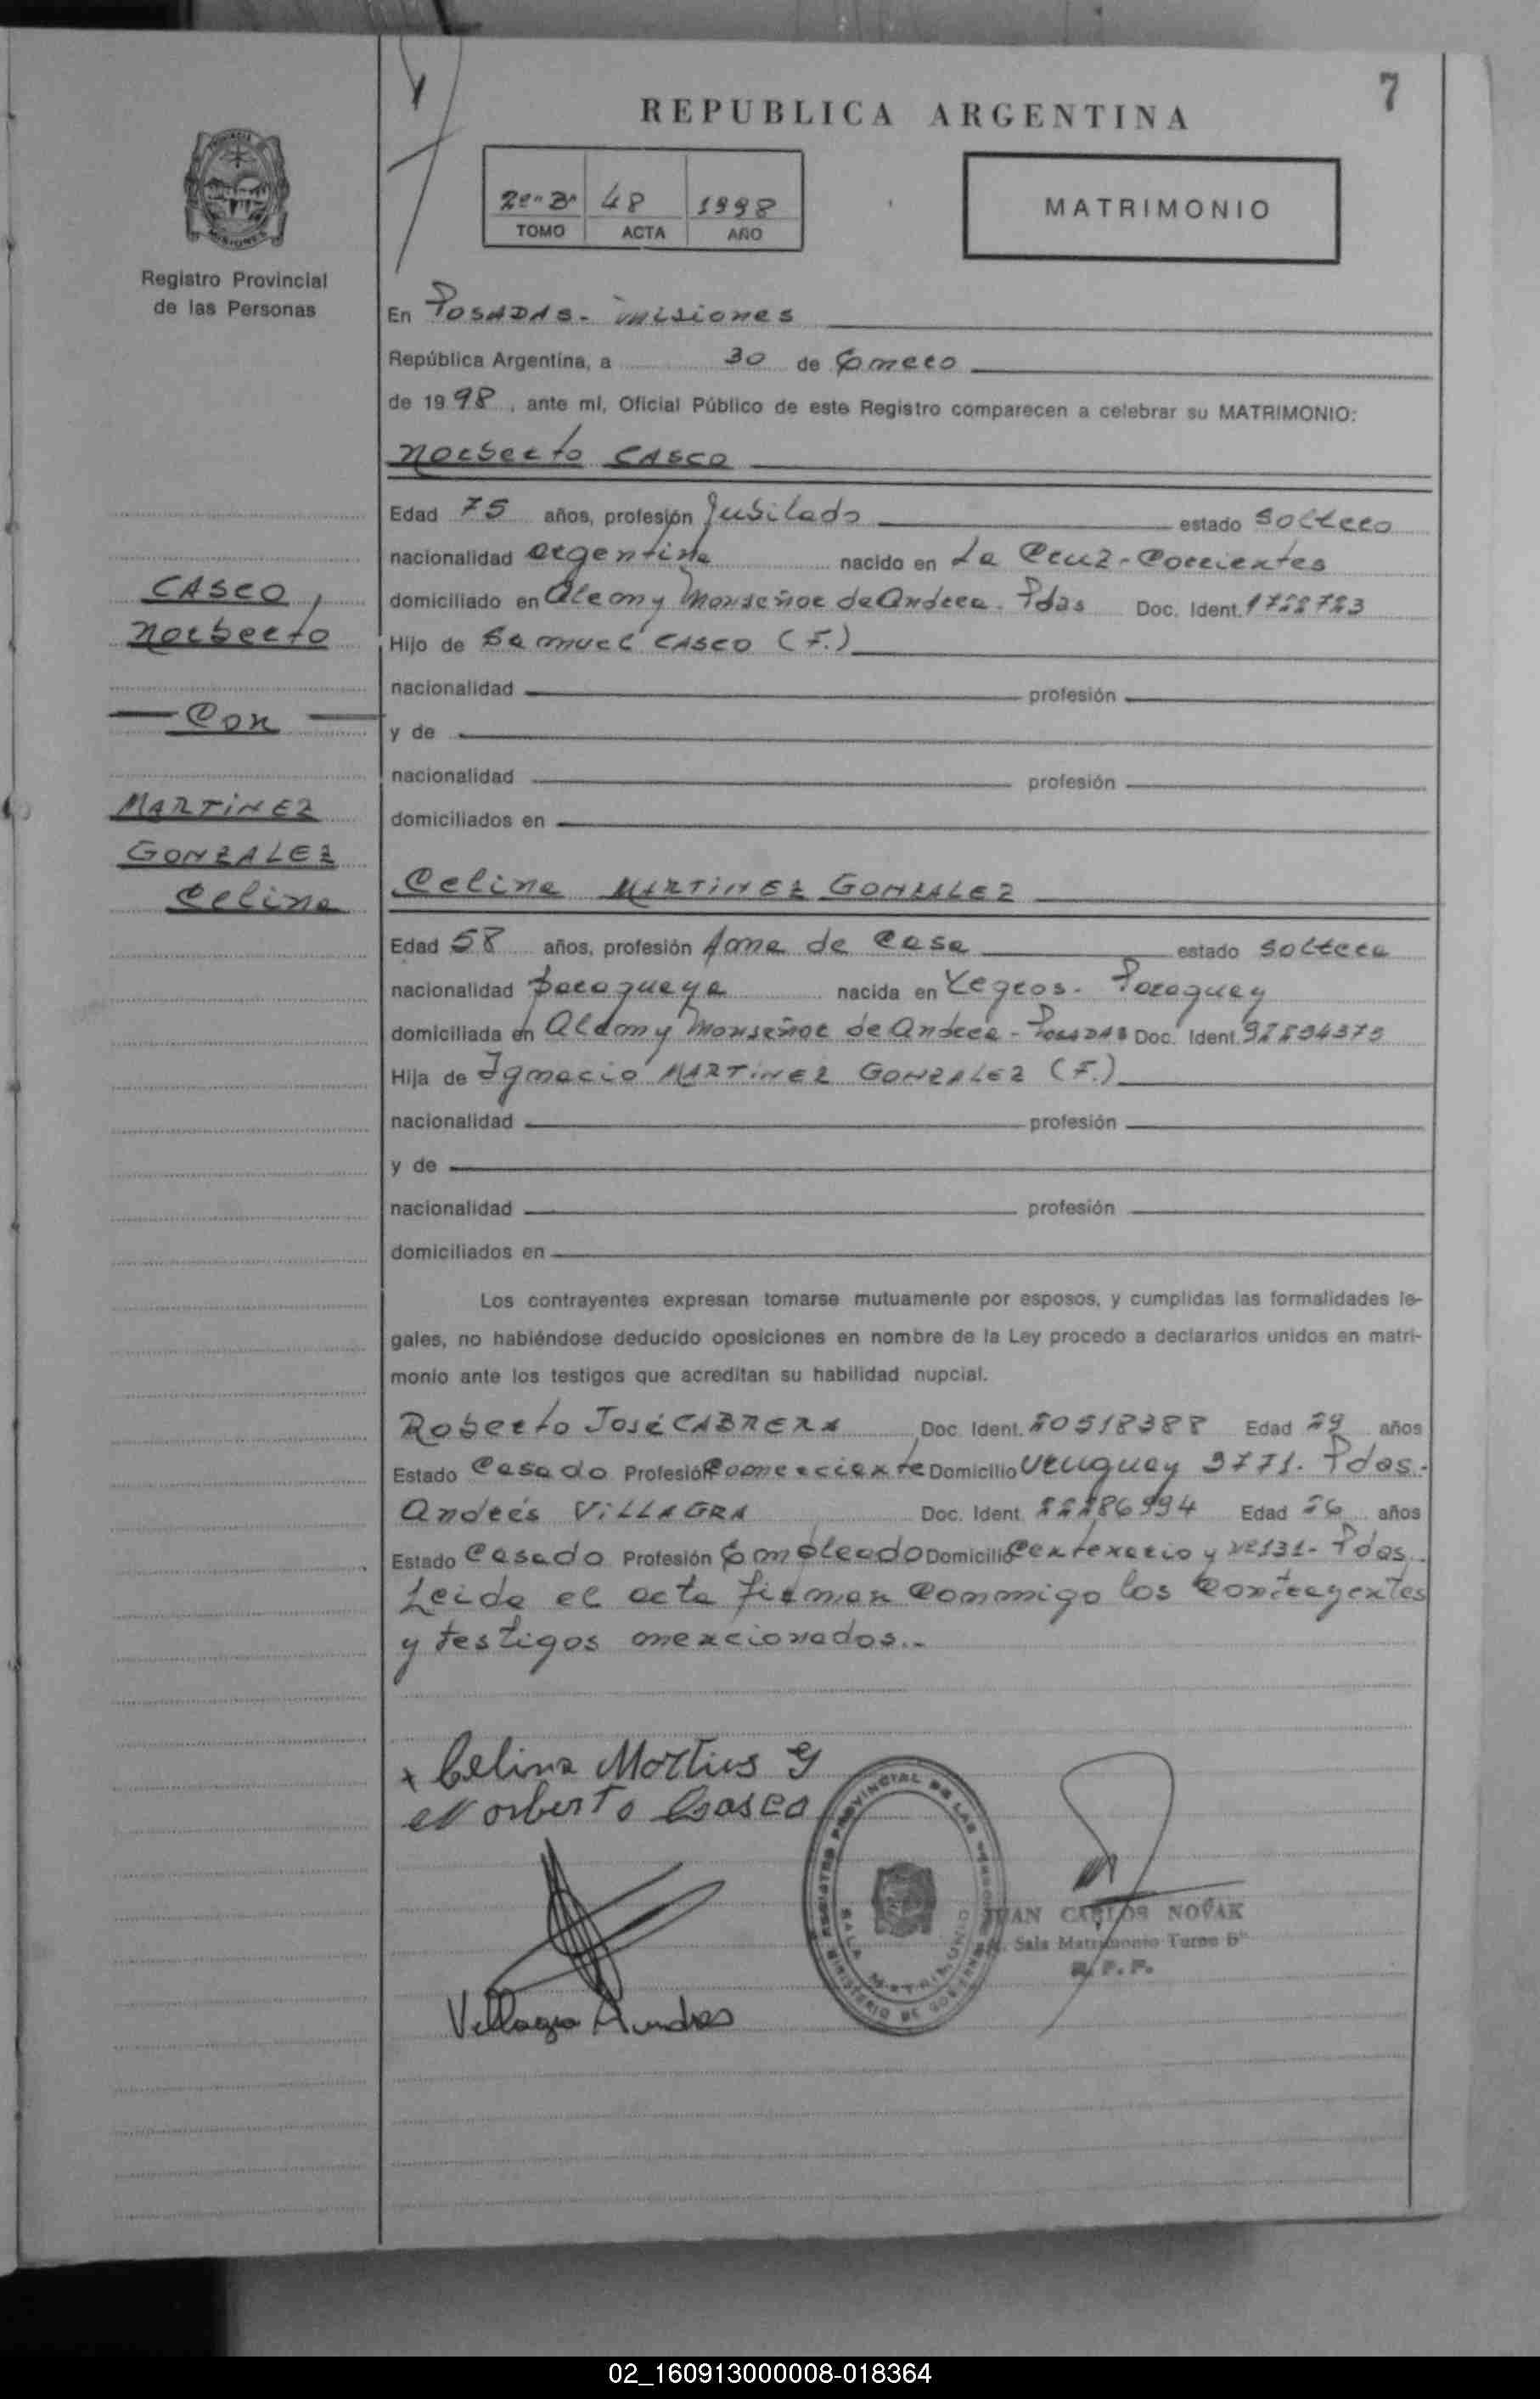 7
REPUBLICA ARGENTINA
48 1998
TOMO ACTA AÑO
MATRIMONIO
Registro Provincial
de las Personas
En POSADAS - Misiones
República Argentina, a 30 de Enero
de 1998, ante mí, Oficial Público de este Registro comparecen a celebrar su MATRIMONIO:
Norberto CASCO
Edad 75 años, profesión Jubilado estado soltero
nacionalidad argentina nacido en La Cruz - Corrientes
domiciliado en Alem y Monseñor de Andrea - Pdas Doc. Ident.
Hijo de Samuel CASCO (F.)
nacionalidad profesión
y de
nacionalidad profesión
domiciliados en
CASCO,
Norberto
Con
MARTINEZ
GONZALEZ
Celina
Celina MARTINEZ GONZALEZ
Edad 58 años, profesión Ama de Casa estado soltera
nacionalidad paraguaya nacida en Yegros - Paraguay
domiciliada en Alem y Monseñor de Andrea - POSADAS Doc. Ident.
Hija de Ignacio MARTINEZ GONZALEZ (F.)
nacionalidad profesión
y de
nacionalidad profesión
domiciliados en
Los contrayentes expresan tomarse mutuamente por esposos, y cumplidas las formalidades le-
gales, no habiéndose deducido oposiciones en nombre de la Ley procedo a declararlos unidos en matri-
monio ante los testigos que acreditan su habilidad nupcial.
Roberto José CABRERA Doc. Ident. 20518388 Edad 29 años
Estado Casado Profesión Comerciante Domicilio Uruguay 3771 - Pdas.
Andrés VILLAGRA Doc. Ident. Edad 26 años
Estado Casado Profesión Empleado Domicilio Centenario y Nº131 - Pdas.
Leida el acta firman conmigo los contrayentes
y testigos mencionados.-
x Celina Martines G
Norberto Casco
Villagra Andres
REGISTRO PROVINCIAL DE LAS PERSONAS
MINISTERIO DE GOBIERNO
SALA MATRIMONIO
JUAN CARLOS NOVAK
Sala Matrimonio Turno
R. P. P.
02_160913000008-018364